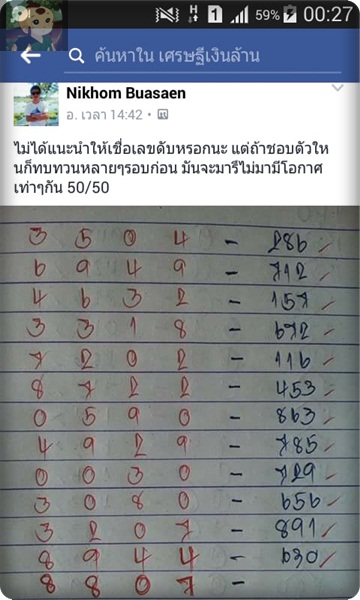 59% 00:27
ค้นหาใน เศรษฐีเงินล้าน
Nikhom Buasaen
อ. เวลา 14:42 •
ไม่ได้แนะนำให้เชื่อเลขดับหรอกนะ แต่ถ้าชอบตัวไห
นก็ทบทวนหลายๆรอบก่อน มันจะมารึไม่มามีโอกาศ
เท่าๆกัน 50/50
3 5 0 4 - 286 ✓
6 9 4 9 - 712 ✓
4 6 3 2 - 157 ✓
3 3 1 8 - 672 ✓
7 2 0 2 - 116 ✓
8 7 2 2 - 453 ✓
0 5 9 0 - 863 ✓
4 9 2 9 - 785 ✓
0 0 3 0 - 729 ✓
3 0 8 0 - 656 ✓
3 2 0 7 - 891 ✓
8 9 4 4 - 630 ✓
8 8 0 7 -